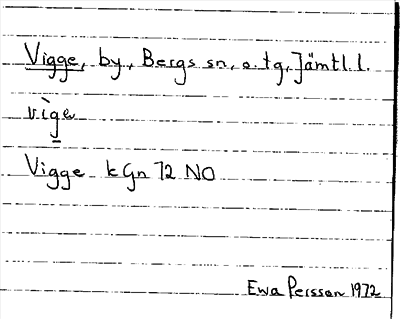 Vigge, by, Bergs sn, o. tg, Jämtl. l.
vìge
Vigge kGn 72 NO
Ewa Persson 1972